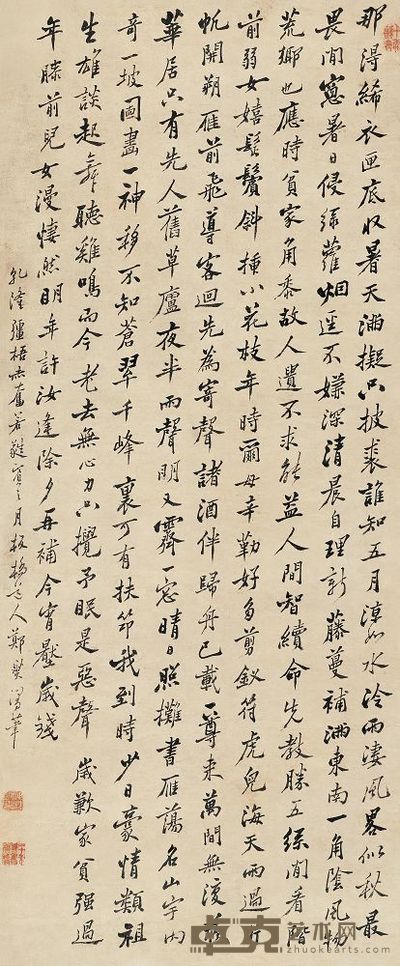 那得絺衣匣底收暑天滿擬只披裘誰知五月涼如水冷雨淒風畧似秋最
畏閒窻暑日侵綠蘿烟逕不嫌深清晨自理新藤蔓補滿東南一角陰風物
荒鄉也應時貧家角黍故人遺不求能益人間智續命先教勝五絲閒看階
前弱女嬉髻鬢斜插小花枝年時爾母辛勤好多剪釵符虎兒海天雨過片
帆開朔雁前飛導客迴先為寄聲諸酒伴歸舟已載一尊來萬間無復
華居只有先人舊草廬夜半雨聲明又霽一窓晴日照攤書雁蕩名山宇內
奇一坡圖畫一神移不知蒼翠千峰裏可有扶筇我到時少日豪情類祖
生雄談起舞聽雞鳴而今老去無心力只攪予眠是惡聲歲歉家貧强過
年膝前兒女漫悽然明年許汝逢除夕再補今宵壓歲錢
乾隆彊梧赤奮若蕤賓之月板橋道人鄭燮
卓克艺术网
www.zhuokearts.com